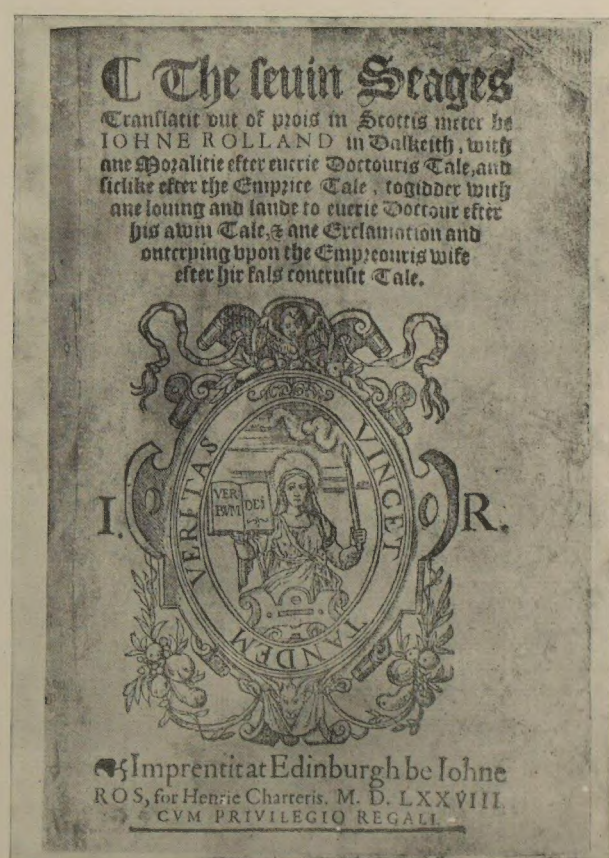 ☾ The seuin Seages
Translatit out of prois in Scottis meter be
IOHNE ROLLAND in Dalkeith, with
ane Moralitie efter euerie Doctouris Tale, and
siclike efter the Emprice Tale, togidder with
ane louing and laude to euerie Doctour efter
his awin Tale, & ane Exclamation and
outcrying vpon the Empreouris wife
efter hir fals contrusit Tale.
VERITAS VINCET TANDEM
VER
BVM
DEI
I. R.
Imprentit at Edinburgh be Iohne
ROS, for Henrie Charteris. M. D. LXXVIII.
CVM PRIVILEGIO REGALI.